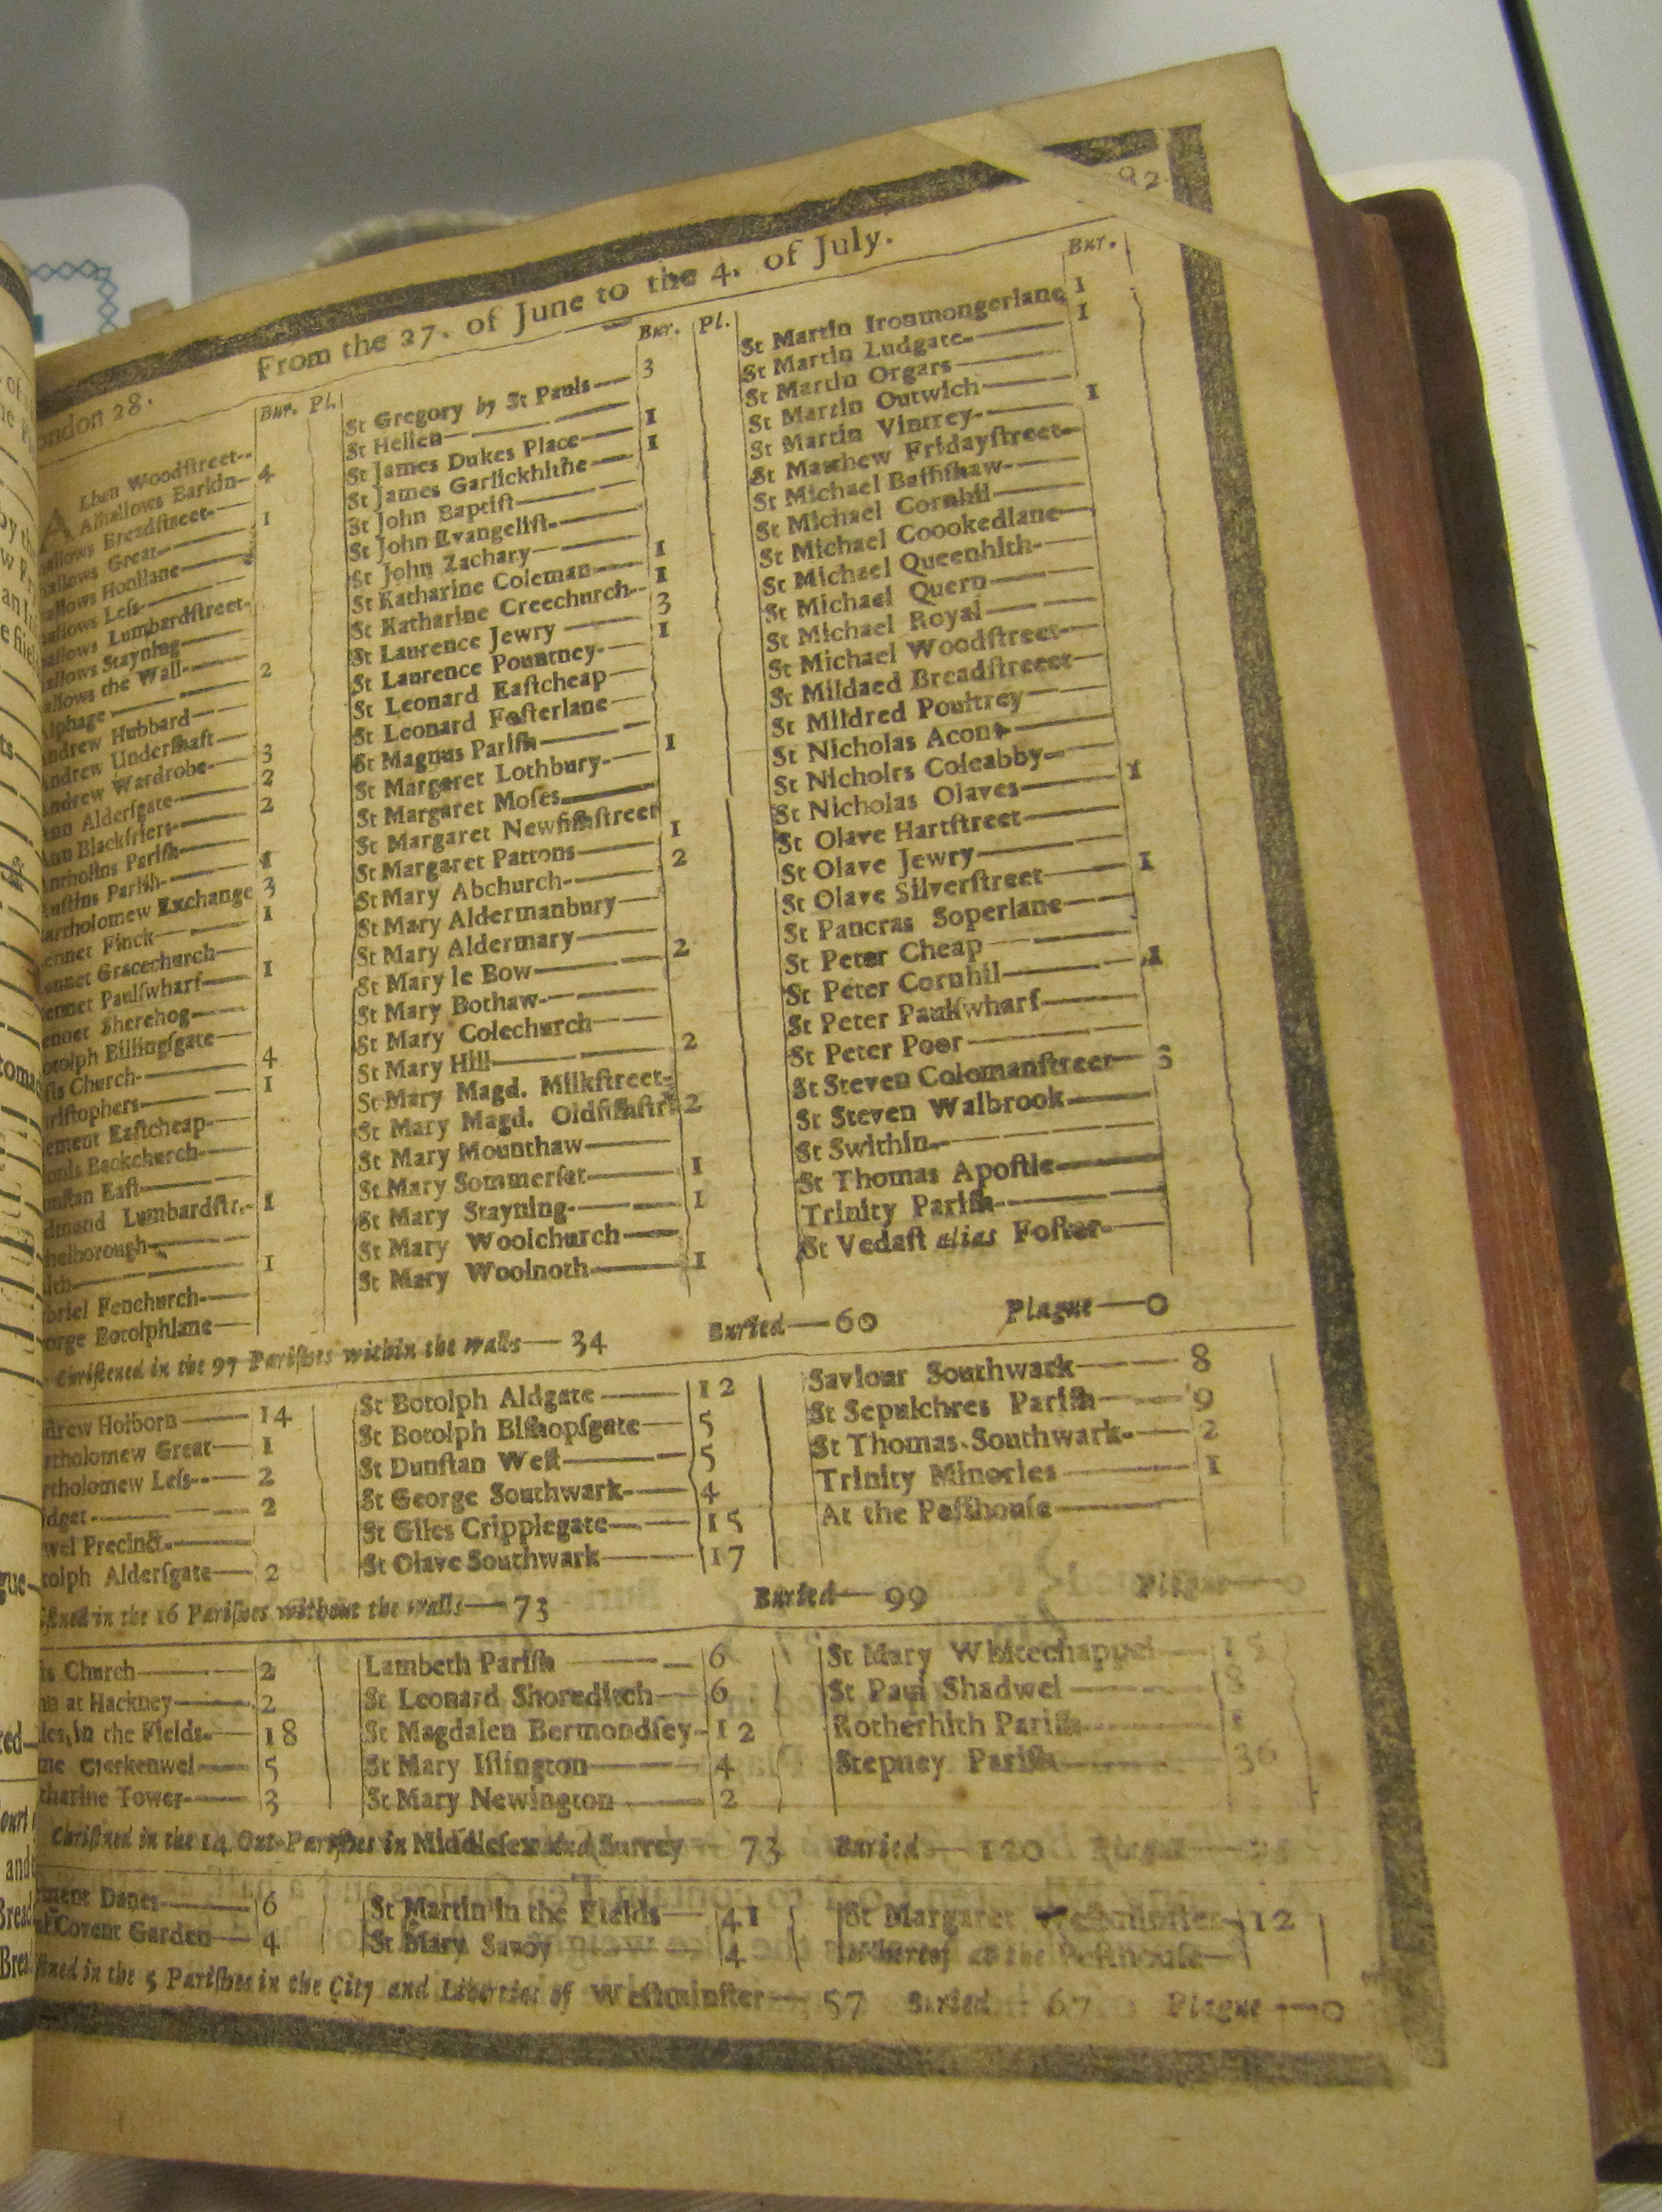 82
From the 27. of June to the 4. of July.
ondon 28.
Bur. Pl.
A Lban Woodſtreet--
Alhallows Barkin— 4
allows Breadſtreet-—
allows Great—— 1
allows Honilane——
allows Leſs-——
allows Lumbardſtreet-
allows Stayning——
allows the Wall-—— 2
lphage ————
ndrew Hubbard——
ndrew Underſhaft——
ndrew Wardrobe-— 3
nn Alderſgate—— 2
nn Blackfriers-—— 2
ntholins Pariſh-——
uſtins Pariſh-—— 1
artholomew Exchange 3
ennet Finck—— 1
ennet Gracechurch—
ennet Paulſwharf—— 1
ennet Sherehog-——
otolph Billingſgate—
ſts Church-—— 4
riſtophers-—— 1
ement Eaſtcheap-—
onis Backchurch-——
unſtan Eaſt-———
dmond Lumbardſtr.- 1
helborough-———
ith-———— 1
briel Fenchurch-——
orge Botolphlane—
Bur. Pl.
St Gregory by St Pauls—— 3
St Hellen— ———
St James Dukes Place—— 1
St James Garlickhithe —— 1
St John Baptiſt———
St John Evangeliſt-——
St John Zachary———
St Katharine Coleman—— 1
St Katharine Creechurch-- 1
St Laurence Jewry —— 3
St Laurence Pountney-— 1
St Leonard Eaſtcheap——
St Leonard Foſterlane——
St Magnus Pariſh———
St Margaret Lothbury-— 1
St Margaret Moſes———
St Margaret Newfiſhſtreet
St Margaret Pattons—— 1
St Mary Abchurch-—— 2
St Mary Aldermanbury——
St Mary Aldermary——
St Mary le Bow——— 2
St Mary Bothaw-———
St Mary Colechurch——
St Mary Hill———— 2
St Mary Magd. Milkſtreet-
St Mary Magd. Oldfiſhſtr 2
St Mary Mounthaw——
St Mary Sommerſet—— 1
St Mary Stayning-—— 1
St Mary Woolchurch——
St Mary Woolnoth—— 1
Bur.
St Martin Ironmongerlane 1
St Martin Ludgate-—— 1
St Martin Orgars———
St Martin Outwich——
St Martin Vintrey-—— 1
St Matthew Fridayſtreet—
St Michael Baſhſhaw-——
St Michael Cornhil——
St Michael Coookedlane—
St Michael Queenhith-—
St Michael Quern———
St Michael Royal———
St Michael Woodſtreet-—
St Mildaed Breadſtreeet—
St Mildred Poultrey——
St Nicholas Acon———
St Nicholrs Coleabby-——
St Nicholas Olaves—— 1
St Olave Hartſtreet——
St Olave Jewry———
St Olave Silverſtreet—— 1
St Pancras Soperlane——
St Peter Cheap ———
St Peter Cornhil——— 1
St Peter Paulſwharf——
St Peter Poor————
St Steven Colomanſtreet—
St Steven Walbrook——
St Swithin-————
St Thomas Apoſtle——
Trinity Pariſh-———
St Vedaſt alias Foſter-—
Chriſtened in the 97 Pariſhes within the walls— 34 Buried—60 Plague—0
drew Holborn —— 14
rtholomew Great— 1
rtholomew Leſs--— 2
idget-——— 2
wel Precinct-——
tolph Alderſgate— 2
St Botolph Aldgate —— 12
St Botolph Biſhopſgate— 5
St Dunſtan Weſt——— 5
St George Southwark-— 4
St Giles Cripplegate—— 15
St Olave Southwark —— 17
Saviour Southwark—— 8
St Sepulchres Pariſh—— 9
St Thomas Southwark-— 2
Trinity Minories ——— 1
At the Peſthouſe———
ſtned in the 16 Pariſhes without the walls—73 Buried—99 Plague—0
ſts Church——— 2
hn at Hackney—— 2
les in the Fields-— 18
me Clerkenwel—— 5
tharine Tower-—— 3
Lambeth Pariſh ——— 6
St Leonard Shoreditch— 6
St Magdalen Bermondſey-12
St Mary Iſlington——— 4
St Mary Newington —— 2
St Mary Whitechappel— 15
St Paul Shadwel —— 8
Rotherhith Pariſh——
Stepney Pariſh——— 36
Chriſtned in the 14 Out-Pariſhes in Middleſex and Surrey — 73 Buried—120 Plague—
ment Danes—— 6
Covent Garden— 4
St Martin in the Fields— 41
St Mary Savoy ——— 4
St Margaret Weſtminſter-12
Whereof at the Peſthouſe—
ſtned in the 5 Pariſhes in the City and Liberties of Weſtminſter— 57 Buried—67 Plague—0